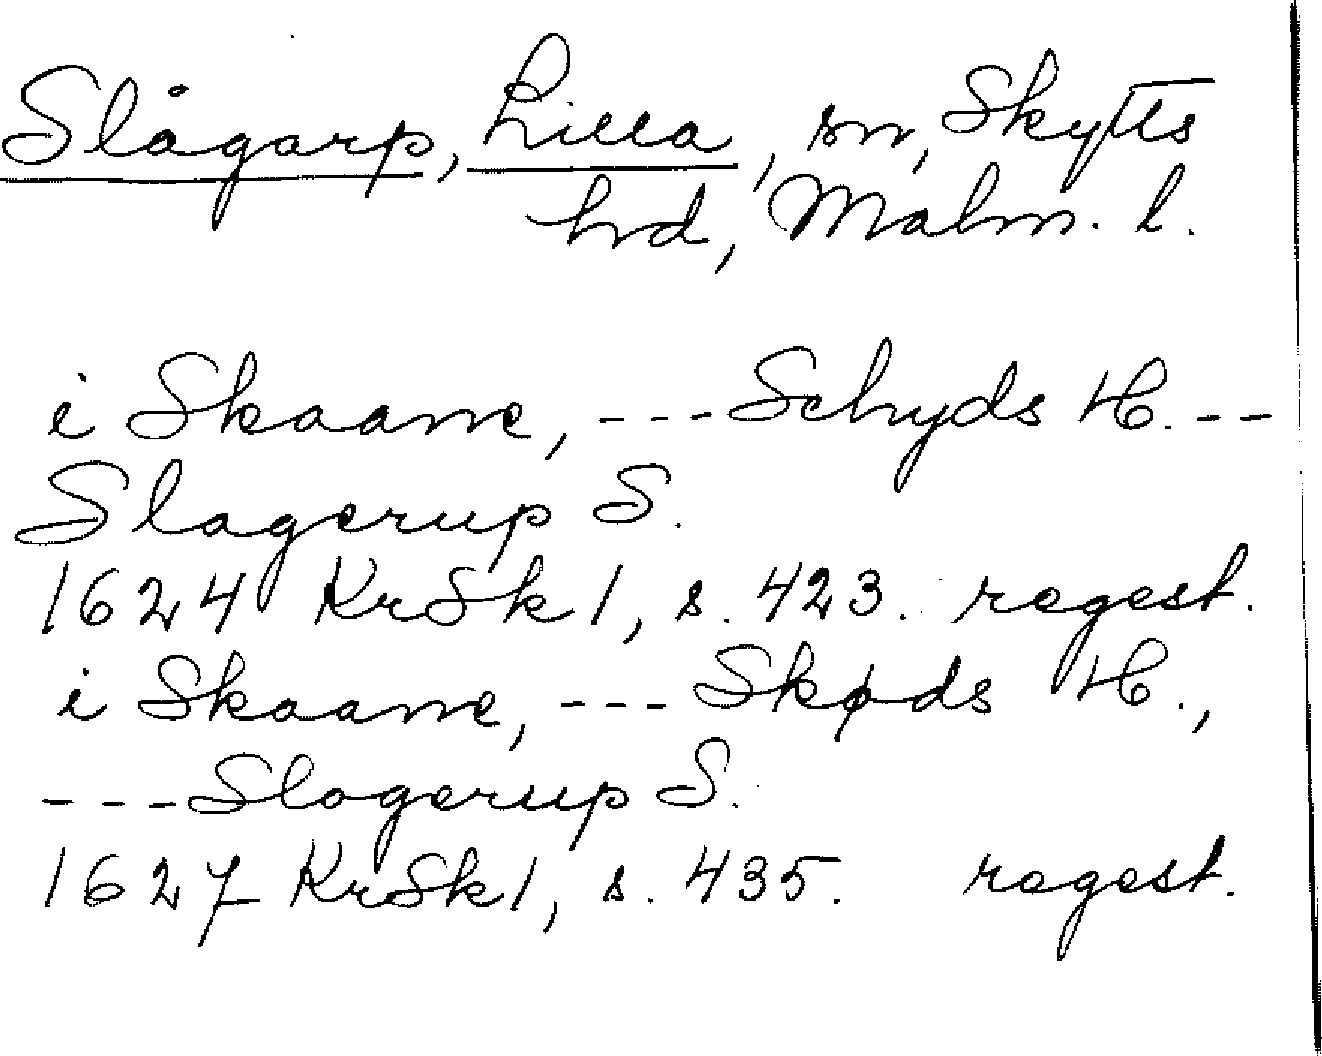 Slågarp, Lilla, sn, Skytts
hrd, Malm. l.
i Skaane, --- Schyds H. --
Slagerup S.
1624 KrSk 1, s. 423. regest.
i Skaane, --- Skøds H.,
--- Slogerup S.
1627 KrSk 1, s. 435. regest.